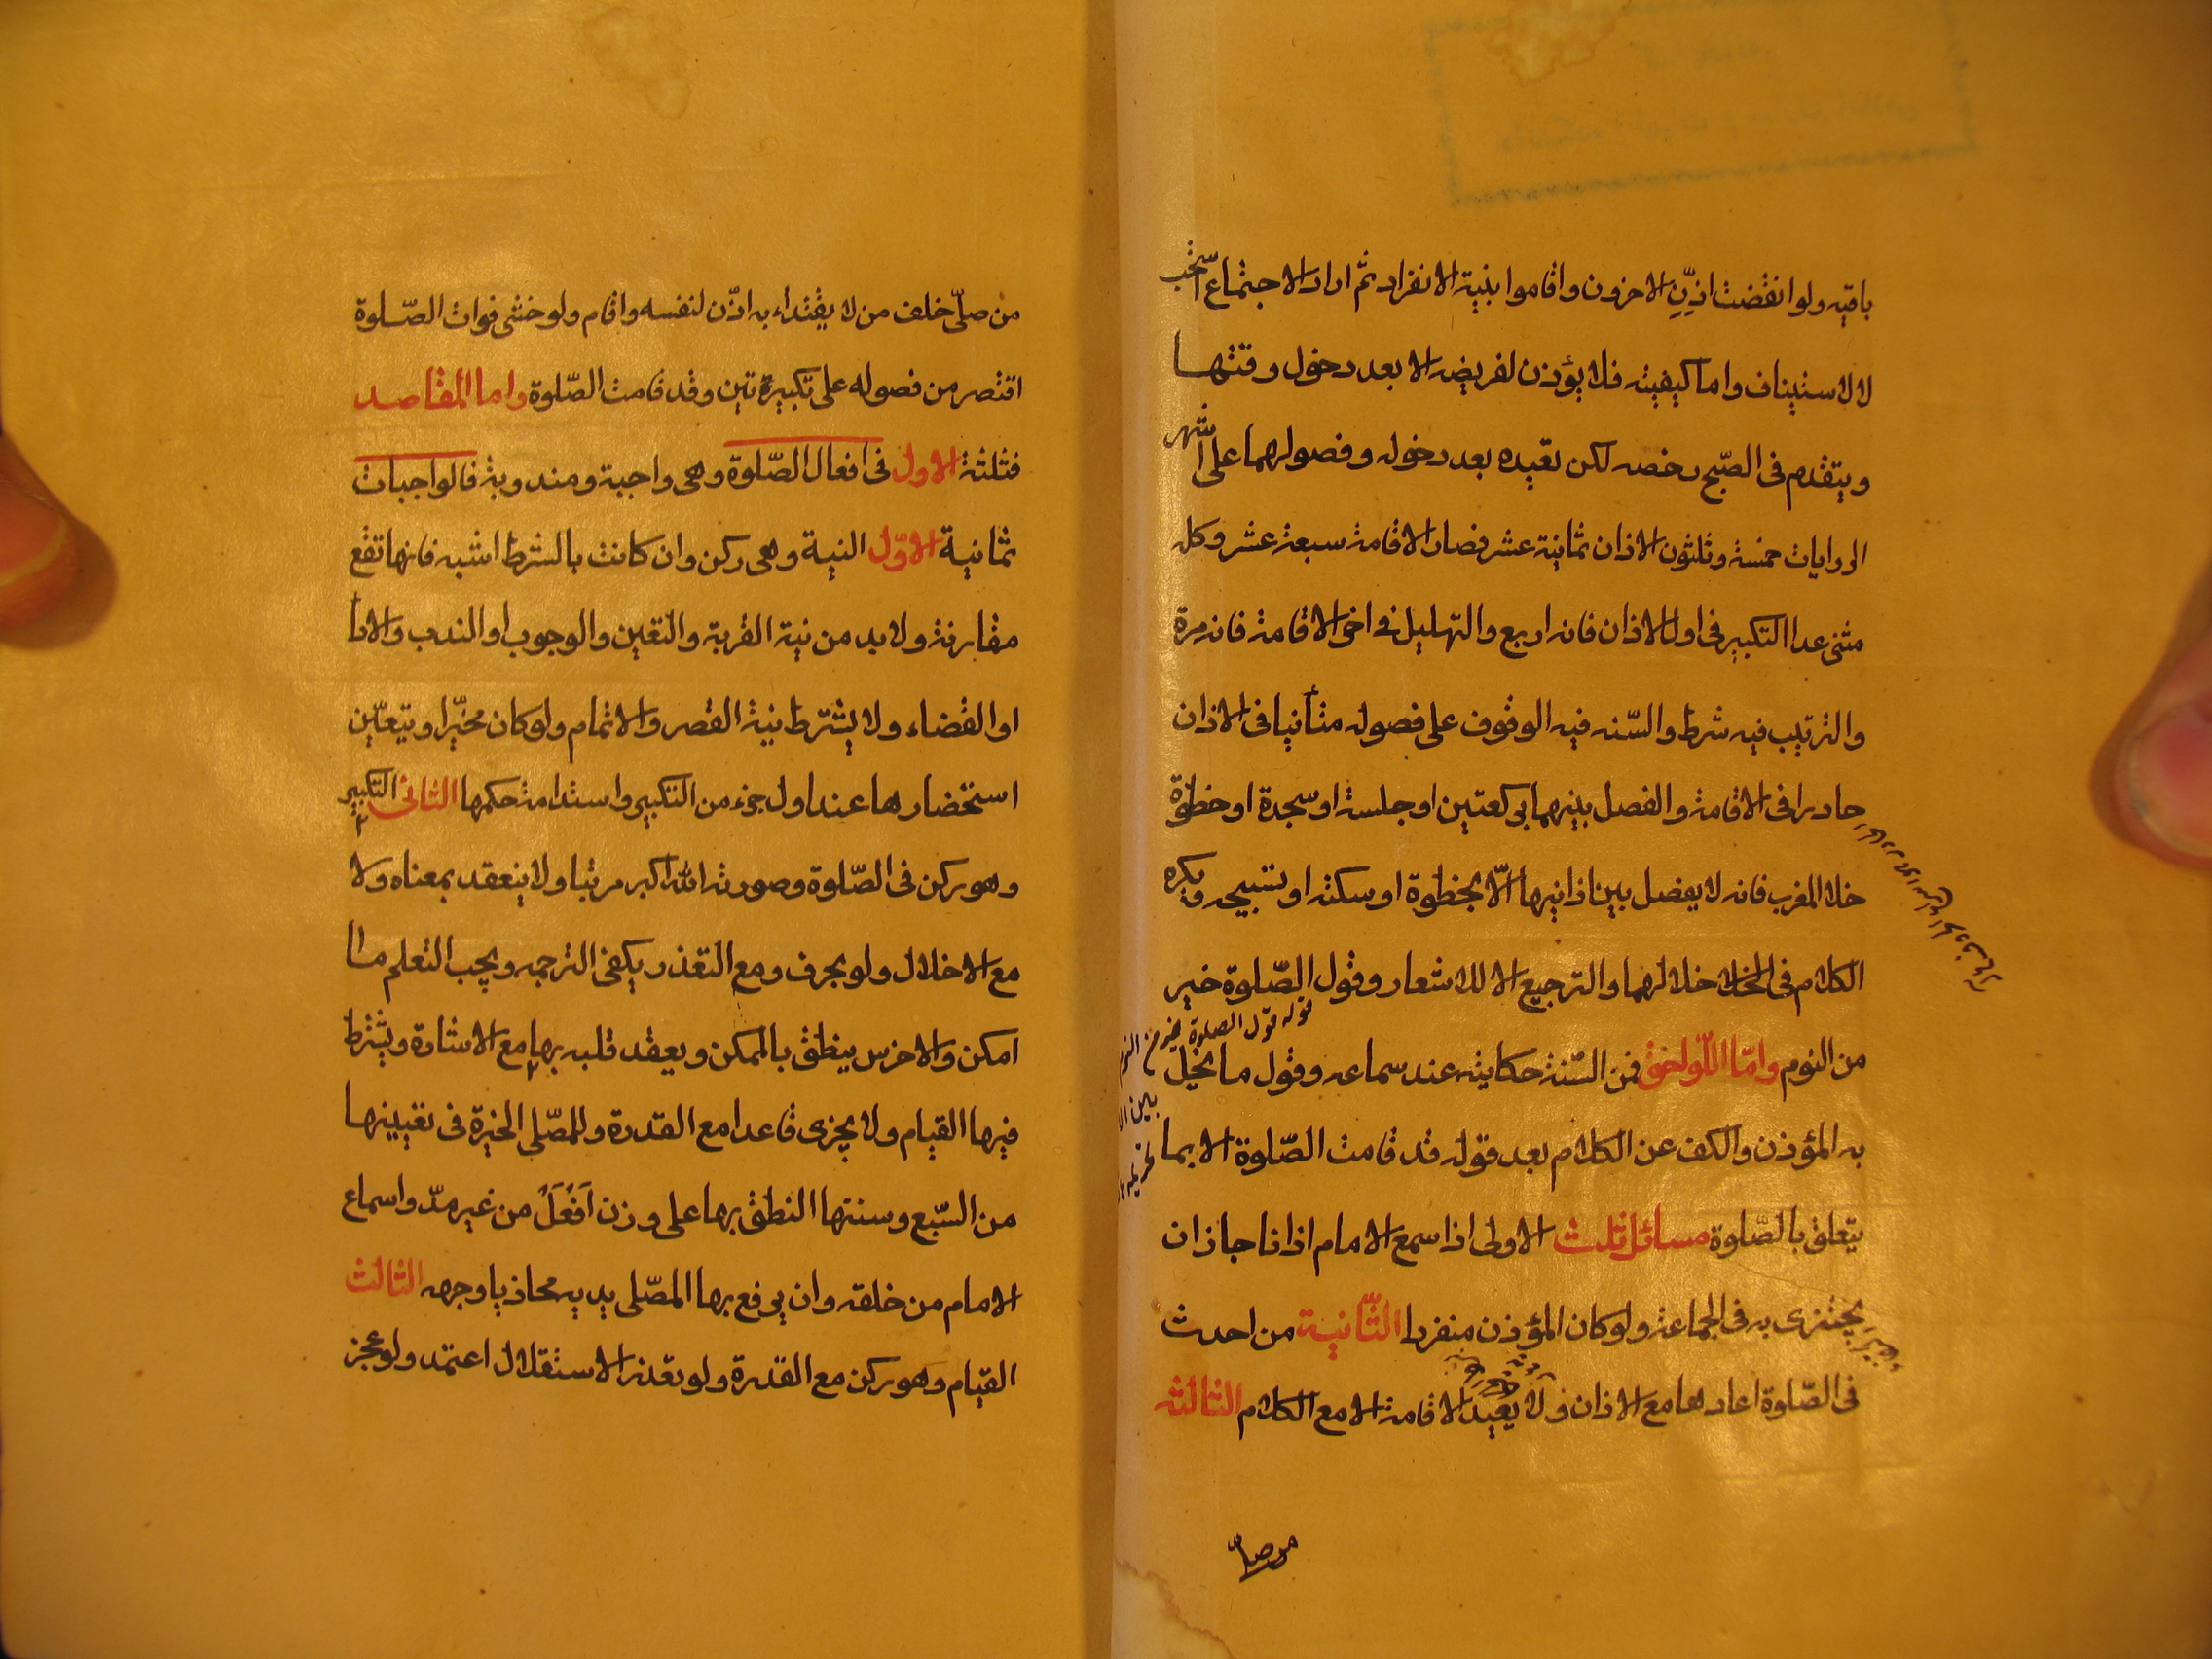 باقيه ولو انفضت اذن الاخرون واقاموا بنية الانفراد ثم اراد الاجتماع استحب
لا لاستيناف واما كيفيته فلا يؤذن لفريضه الا بعد دخول وقتها
ويتقدم فى الصبح رخصه لكن تعيده بعد دخوله وفصولهما على اشهر
الروايات خمسة وثلثون الاذان ثمانية عشر فصار الاقامة سبعة عشر وكله
مثنى عدا التكبير فى اول الاذان فانه اربع والتهليل فى اخر الاقامة فانه مرة
والترتيب فيه شرط والسّنه فيه الوقوف على فصوله متأنيا فى الاذان
حادرا فى الاقامة والفصل بينهما بركعتين او جلسة او سجدة او خطوة
خلا المغرب فانه لا يفصل بين اذانيها الّا بخطوة او سكتة او تسبيحه ويكره
الكلام فى خلالهما والترجيع الا للاشعار وقول الصّلوة خير
من النوم وامّا اللّواحق فمن السّنة حكايته عند سماعه وقول ما يخل
به المؤذن والكف عن الكلام بعد قوله قد قامت الصّلوة الا بما
يتعلق بالصّلوة مسائل ثلث الاولى اذا سمع الامام اذانا جاز ان
يجتزى به فى الجماعة ولو كان المؤذن منفردا الثّانية من احدث
فى الصّلوة اعادها مع الاذان ولا يعيد الاقامة الا مع الكلام الثالثه
قوله قول الصلوة خير من النوم
من صلّى
من صلّى خلف من لا يقتداء به اذّن لنفسه واقام ولو خشى فوات الصّلوة
اقتصر من فصوله على تكبيرتين وقد قامت الصّلوة واما المقاصد
فثلثة الاول فى افعال الصّلوة وهى واجبة ومندوبة فالواجبات
ثمانية الاوّل النية وهى ركن وان كانت بالشرط اشبه فانها تقع
مقارنة ولا بد من نية القربة والتعين والوجوب او الندب والادا
او القضاء ولا يشترط نية القصر والاتمام ولو كان مخيّرا ويتعيّن
استحضارها عند اول جزء من التكبير واستدامة حكمها الثانى التكبير
وهو ركن فى الصّلوة وصورته الله اكبر مرتبا ولا ينعقد بمعناه ولا
مع الاخلال ولو بحرف ومع التعذر يكفى الترجمه ويجب التعلم ما
امكن والاخرس ينطق بالممكن ويعقد قلبه بها مع الاشارة ويشترط
فيها القيام ولا يجزى قاعدا مع القدرة وللمصّلى الخيرة فى تعيينها
من السّبع وسننها النطق بها على وزن اَفْعَلُ من غير مدّ واسماع
الامام من خلفه وان يرفع بها المصّلى يديه محاذيا وجهه الثالث
القيام وهو ركن مع القدرة ولو تعذر الاستقلال اعتمد ولو عجز